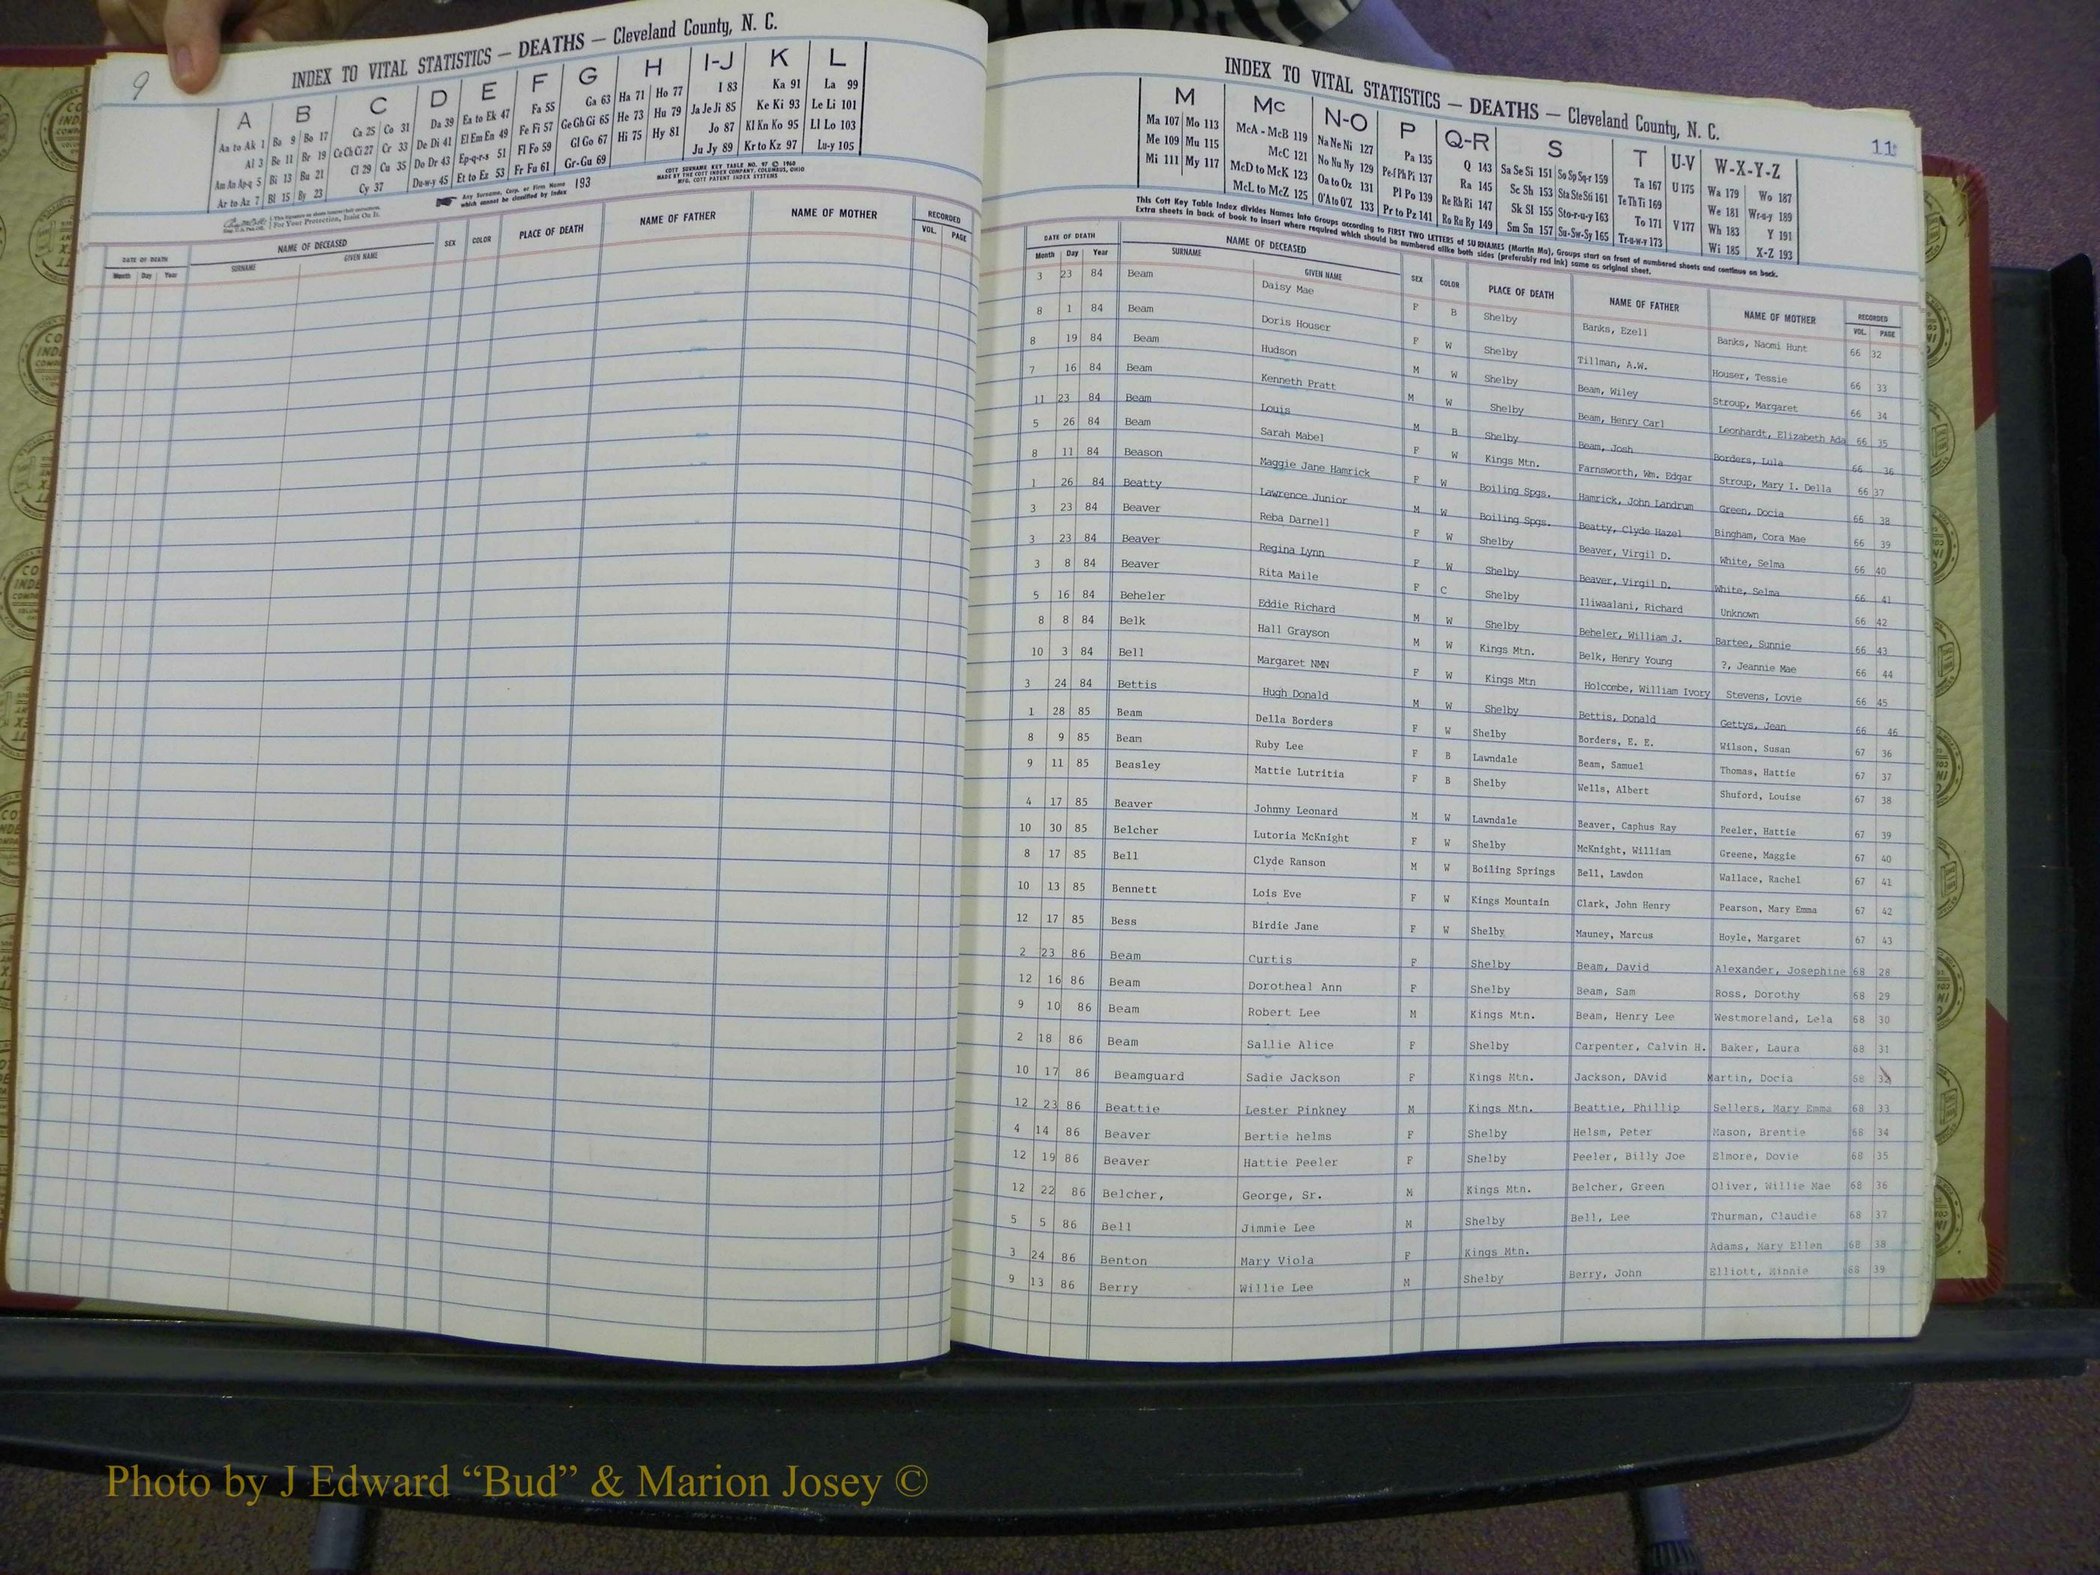 9
INDEX TO VITAL STATISTICS — DEATHS — Cleveland County, N. C.
A B C D E F G H I-J K L
Aa to Ak 1 Ba 9 Bo 17 Ca 25 Co 31 Da 39 Ea to Ek 47 Fa 55 Ga 63 Ha 71 Ho 77 I 83 Ka 91 La 99
Al 3 Be 11 Br 19 Ce Ch Ci 27 Cr 33 De Di 41 El Em En 49 Fe Fi 57 Ge Gh Gi 65 He 73 Hu 79 Ja Je Ji 85 Ke Ki 93 Le Li 101
Am An Ap-q 5 Bi 13 Bu 21 Cl 29 Cu 35 Do Dr 43 Ep-q-r-s 51 Fl Fo 59 Gl Go 67 Hi 75 Hy 81 Jo 87 Kl Kn Ko 95 Ll Lo 103
Ar to Az 7 Bl 15 By 23 Cy 37 Du-w-y 45 Et to Ez 53 Fr Fu 61 Gr-Gu 69 Ju Jy 89 Kr to Kz 97 Lu-y 105
For Your Protection, Insist On It.
Any Surname, Corp. or Firm Name which cannot be classified by Index 193
COTT SURNAME KEY TABLE NO. 97 © 1960
MADE BY THE COTT INDEX COMPANY, COLUMBUS, OHIO
MFG. COTT PATENT INDEX SYSTEMS
DATE OF DEATH NAME OF DECEASED SEX COLOR PLACE OF DEATH NAME OF FATHER NAME OF MOTHER RECORDED
Month Day Year SURNAME GIVEN NAME VOL. PAGE
INDEX TO VITAL STATISTICS — DEATHS — Cleveland County, N. C.
11
M Mc N-O P Q-R S T U-V W-X-Y-Z
Ma 107 Mo 113 McA - McB 119 Na Ne Ni 127 Pa 135 Q 143 Sa Se Si 151 So Sp Sq-r 159 Ta 167 U 175 Wa 179 Wo 187
Me 109 Mu 115 McC 121 No Nu Ny 129 Pe f Ph Pi 137 Ra 145 Sc Sh 153 Sta Ste Sti 161 Te Th Ti 169 We 181 Wr-u-y 189
Mi 111 My 117 McD to McK 123 Oa to Oz 131 Pl Po 139 Re Rh Ri 147 Sk Sl 155 Sto-r-u-y 163 To 171 V 177 Wh 183 Y 191
McL to McZ 125 O'A to O'Z 133 Pr to Pz 141 Ro Ru Ry 149 Sm Sn 157 Su-Sw-Sy 165 Tr-u-w-y 173 Wi 185 X-Z 193
This Cott Key Table Index divides Names into Groups according to FIRST TWO LETTERS of SURNAMES (Martin Ma), Groups start on front of numbered sheets and continue on back.
Extra sheets in back of book to insert where required which should be numbered alike both sides (preferably red ink) same as original sheet.
DATE OF DEATH NAME OF DECEASED SEX COLOR PLACE OF DEATH NAME OF FATHER NAME OF MOTHER RECORDED
Month Day Year SURNAME GIVEN NAME VOL. PAGE
3 23 84 Beam Daisy Mae F B Shelby Banks, Ezell Banks, Naomi Hunt 66 32
8 1 84 Beam Doris Houser F W Shelby Tillman, A.W. Houser, Tessie 66 33
8 19 84 Beam Hudson M W Shelby Beam, Wiley Stroup, Margaret 66 34
7 16 84 Beam Kenneth Pratt M W Shelby Beam, Henry Carl Leonhardt, Elizabeth Ada 66 35
11 23 84 Beam Louis M B Shelby Beam, Josh Borders, Lula 66 36
5 26 84 Beam Sarah Mabel F W Kings Mtn. Farnsworth, Wm. Edgar Stroup, Mary I. Della 66 37
8 11 84 Beason Maggie Jane Hamrick F W Boiling Spgs. Hamrick, John Landrum Green, Docia 66 38
1 26 84 Beatty Lawrence Junior M W Boiling Spgs. Beatty, Clyde Hazel Bingham, Cora Mae 66 39
3 23 84 Beaver Reba Darnell F W Shelby Beaver, Virgil D. White, Selma 66 40
3 23 84 Beaver Regina Lynn F W Shelby Beaver, Virgil D. White, Selma 66 41
3 8 84 Beaver Rita Maile F C Shelby Iliwaalani, Richard Unknown 66 42
5 16 84 Beheler Eddie Richard M W Shelby Beheler, William J. Bartee, Sunnie 66 43
8 8 84 Belk Hall Grayson M W Kings Mtn. Belk, Henry Young ?, Jeannie Mae 66 44
10 3 84 Bell Margaret NMN F W Kings Mtn Holcombe, William Ivory Stevens, Lovie 66 45
3 24 84 Bettis Hugh Donald M W Shelby Bettis, Donald Gettys, Jean 66 46
1 28 85 Beam Della Borders F W Shelby Borders, E. E. Wilson, Susan 67 36
8 9 85 Beam Ruby Lee F B Lawndale Beam, Samuel Thomas, Hattie 67 37
9 11 85 Beasley Mattie Lutritia F B Shelby Wells, Albert Shuford, Louise 67 38
4 17 85 Beaver Johnny Leonard M W Lawndale Beaver, Caphus Ray Peeler, Hattie 67 39
10 30 85 Belcher Lutoria McKnight F W Shelby McKnight, William Greene, Maggie 67 40
8 17 85 Bell Clyde Ranson M W Boiling Springs Bell, Lawdon Wallace, Rachel 67 41
10 13 85 Bennett Lois Eve F W Kings Mountain Clark, John Henry Pearson, Mary Emma 67 42
12 17 85 Bess Birdie Jane F W Shelby Mauney, Marcus Hoyle, Margaret 67 43
2 23 86 Beam Curtis F Shelby Beam, David Alexander, Josephine 68 28
12 16 86 Beam Dorotheal Ann F Shelby Beam, Sam Ross, Dorothy 68 29
9 10 86 Beam Robert Lee M Kings Mtn. Beam, Henry Lee Westmoreland, Lela 68 30
2 18 86 Beam Sallie Alice F Shelby Carpenter, Calvin H. Baker, Laura 68 31
10 17 86 Beamguard Sadie Jackson F Kings Mtn. Jackson, DAvid Martin, Docia 68 32
12 23 86 Beattie Lester Pinkney M Kings Mtn. Beattie, Phillip Sellers, Mary Emma 68 33
4 14 86 Beaver Bertie helms F Shelby Helsm, Peter Mason, Brentie 68 34
12 19 86 Beaver Hattie Peeler F Shelby Peeler, Billy Joe Elmore, Dovie 68 35
12 22 86 Belcher, George, Sr. M Kings Mtn. Belcher, Green Oliver, Willie Mae 68 36
5 5 86 Bell Jimmie Lee M Shelby Bell, Lee Thurman, Claudie 68 37
3 24 86 Benton Mary Viola F Kings Mtn. Adams, Mary Ellen 68 38
9 13 86 Berry Willie Lee M Shelby Berry, John Elliott, Minnie 68 39
Photo by J Edward “Bud” & Marion Josey ©